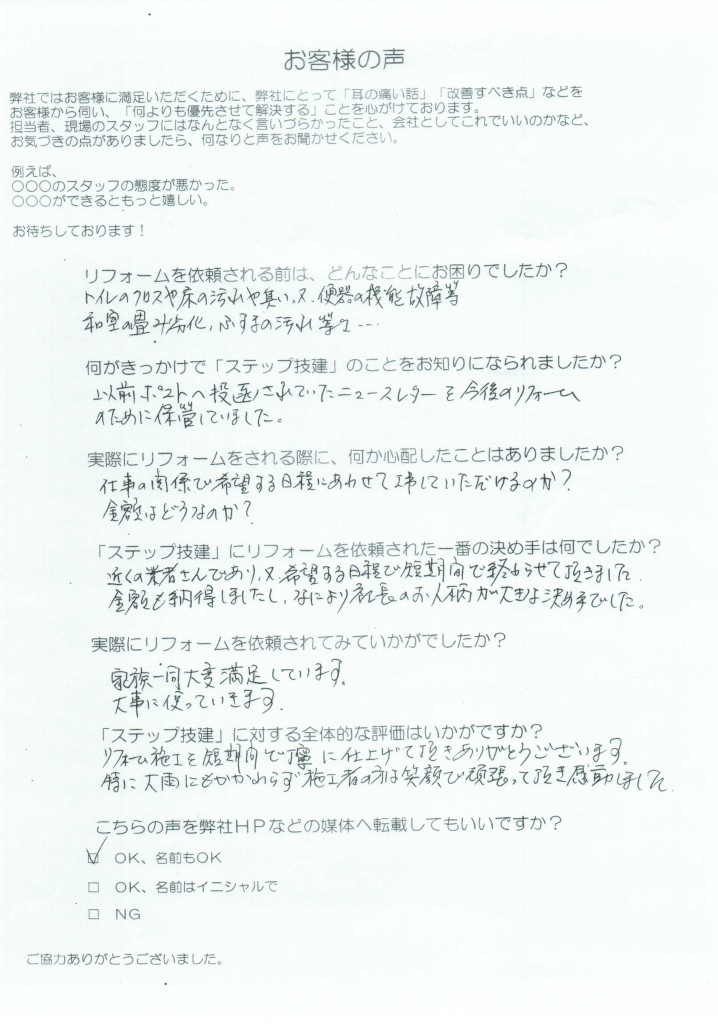 お客様の声
弊社ではお客様に満足いただくために、弊社にとって「耳の痛い話」「改善すべき点」などを
お客様から伺い、「何よりも優先させて解決する」ことを心がけております。
担当者、現場のスタッフにはなんとなく言いづらかったこと、会社としてこれでいいのかなど、
お気づきの点がありましたら、何なりと声をお聞かせください。
例えば、
○○○のスタッフの態度が悪かった。
○○○ができるともっと嬉しい。
お待ちしております！
リフォームを依頼される前は、どんなことにお困りでしたか？
トイレのクロスや床の汚れや臭い、又、便器の機能故障等
和室の畳み劣化、ふすまの汚れ等々…
何がきっかけで「ステップ技建」のことをお知りになられましたか？
以前ポストへ投函されていたニュースレターを今後のリフォーム
のために保管していました。
実際にリフォームをされる際に、何か心配したことはありましたか？
仕事の関係で希望する日程にあわせて工事していただけるのか？
金額はどうなのか？
「ステップ技建」にリフォームを依頼された一番の決め手は何でしたか？
近くの業者さんであり、又、希望する日程で短期間で終わらせて頂きました
金額も納得しましたし、なにより社長のお人柄が大きな決め手でした。
実際にリフォームを依頼されてみていかがでしたか？
家族一同大変満足しています。
大事に使っていきます。
「ステップ技建」に対する全体的な評価はいかがですか？
リフォーム施工を短期間で丁寧に仕上げて頂きありがとうございます。
特に大雨にもかかわらず施工者の方は笑顔で頑張って頂き感動しました。
こちらの声を弊社ＨＰなどの媒体へ転載してもいいですか？
☑ ＯＫ、名前もＯＫ
□ ＯＫ、名前はイニシャルで
□ ＮＧ
ご協力ありがとうございました。